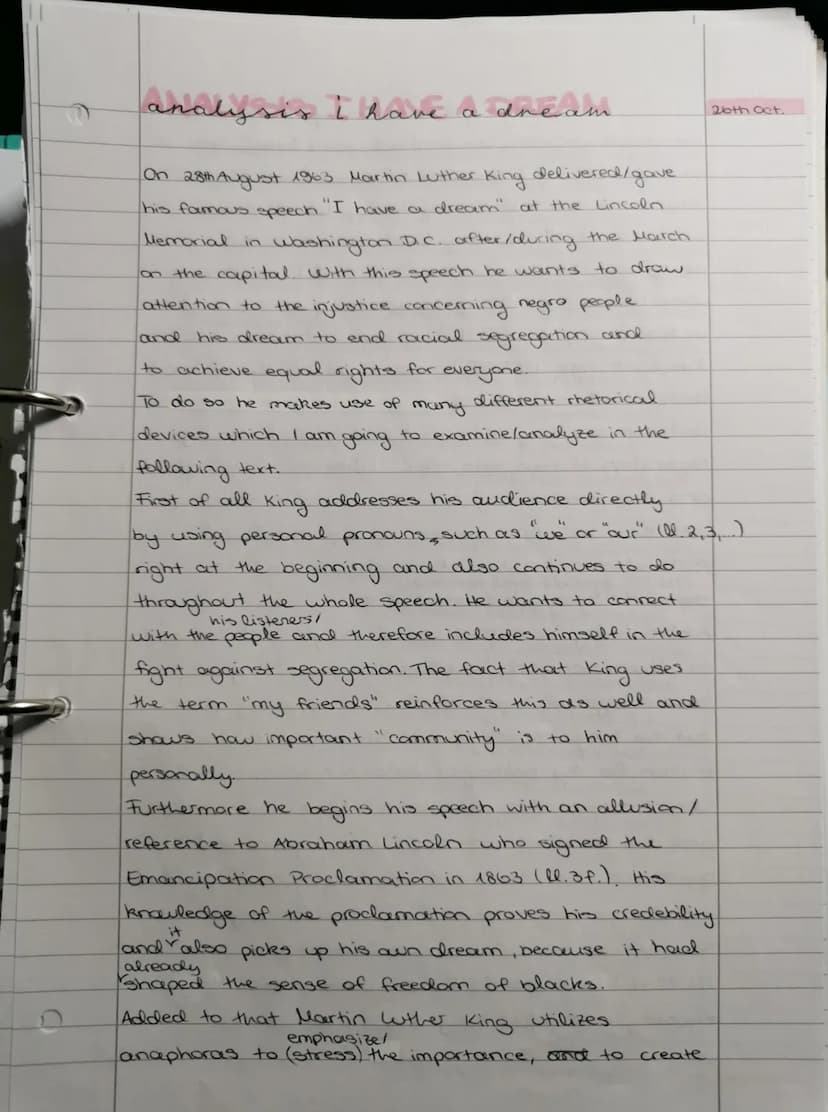 analysis i have a dream
26th Oct.
On 28th August 1963 Martin Luther King delivered/gave
his famous speech "I have a dream" at the Lincoln
Memorial in Washington D.C. after/during the March
on the capital. With this speech he wants to draw
attention to the injustice concerning negro people
and his dream to end racial segregation and
to achieve equal rights for everyone.
To do so he makes use of many different rhetorical
devices which I am going to examine/analyze in the
following text.
First of all King addresses his audience directly
by using personal pronouns, such as "we" or "our" (ll. 2,3,..)
right at the beginning and also continues to do
throughout the whole speech. He wants to connect
his listeners/
with the people and therefore includes himself in the
fight against segregation. The fact that King uses
the term "my friends" reinforces this as well and
shows how important "community" is to him
personally.
Furthermore he begins his speech with an allusion/
reference to Abraham Lincoln who signed the
Emancipation Proclamation in 1863 (ll. 3f.). His
knowledge of the proclamation proves his credebility
it
and also picks up his own dream, because it had
already
shaped the sense of freedom of blacks.
Added to that Martin Luther King utilizes
emphasize/
anaphoras to (stress) the importance, and to create